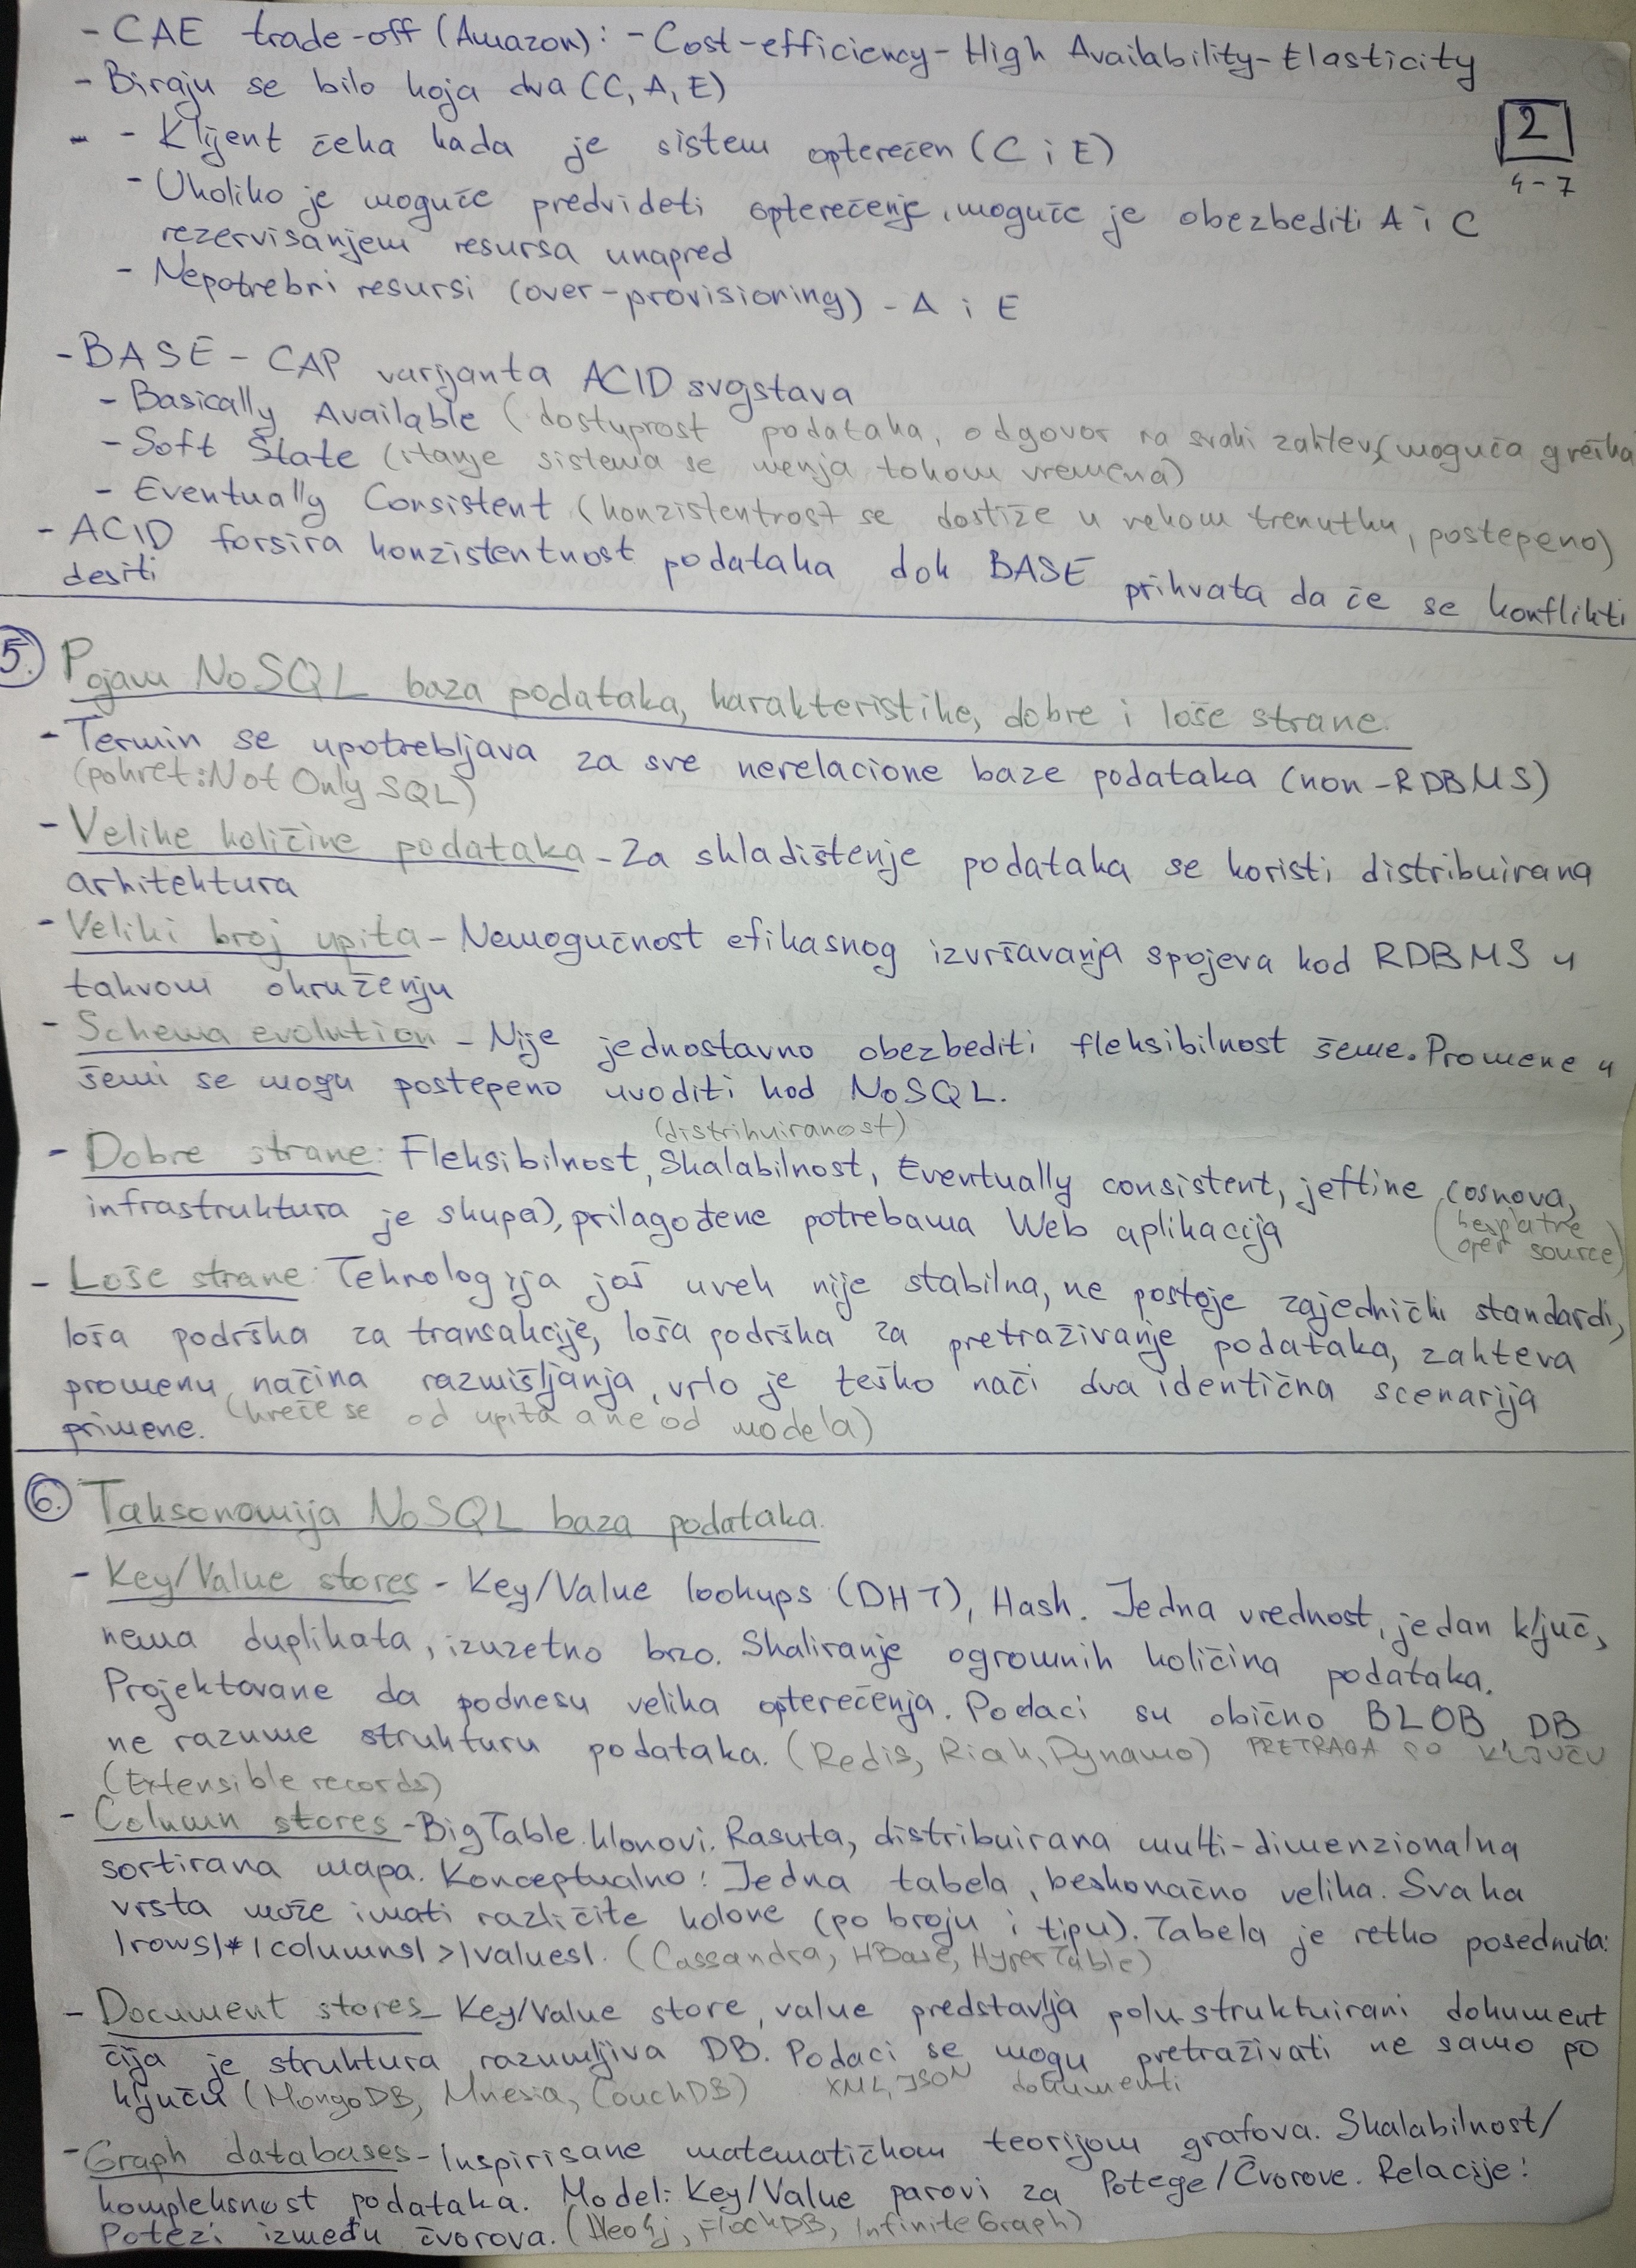 - CAE trade-off (Amazon): - Cost-efficiency - High Availability - Elasticity
- Biraju se bilo koja dva (C, A, E)
2
4-7
- - Klijent čeka kada je sistem opterećen (C i E)
- Ukoliko je moguće predvideti opterećenje, moguće je obezbediti A i C
rezervisanjem resursa unapred
- Nepotrebni resursi (over-provisioning) - A i E
- BASE - CAP varijanta ACID svojstava
- Basically Available (dostupnost podataka, odgovor na svaki zahtev, (moguća greška
- Soft State (stanje sistema se menja tokom vremena)
- Eventually Consistent (konzistentnost se dostiže u nekom trenutku, postepeno)
- ACID forsira konzistentnost podataka dok BASE prihvata da će se konflikti
desiti
5. Pojam NoSQL baza podataka, karakteristike, dobre i loše strane.
- Termin se upotrebljava za sve nerelacione baze podataka (non-RDBMS)
(pokret: Not Only SQL)
- Velike količine podataka - Za skladištenje podataka se koristi distribuirana
arhitektura
- Veliki broj upita - Nemogućnost efikasnog izvršavanja spojeva kod RDBMS u
takvom okruženju
- Schema evolution - Nije jednostavno obezbediti fleksibilnost šeme. Promene u
šemi se mogu postepeno uvoditi kod NoSQL.
(distribuiranost)
- Dobre strane: Fleksibilnost, Skalabilnost, Eventually consistent, jeftine (osnova,
infrastruktura je skupa), prilagođene potrebama Web aplikacija
(besplatne
open source)
- Loše strane: Tehnologija još uvek nije stabilna, ne postoje zajednički standardi,
loša podrška za transakcije, loša podrška za pretraživanje podataka, zahteva
promenu načina razmišljanja, vrlo je teško naći dva identična scenarija
primene. (kreće se od upita a ne od modela)
6. Taksonomija NoSQL baza podataka.
- Key/Value stores - Key/Value lookups (DHT), Hash. Jedna vrednost, jedan ključ,
nema duplikata, izuzetno brzo. Skaliranje ogromnih količina podataka.
Projektovane da podnesu velika opterećenja. Podaci su obično BLOB, DB
ne razume strukturu podataka. (Redis, Riak, Dynamo) PRETRAGA PO KLJUČU
(Extensible records)
- Column stores - BigTable klonovi. Rasuta, distribuirana multi-dimenzionalna
sortirana mapa. Konceptualno: Jedna tabela, beskonačno velika. Svaka
vrsta može imati različite kolone (po broju i tipu). Tabela je retko posednuta:
|rows|*|columns|>|values|. (Cassandra, HBase, HyperTable)
- Document stores - Key/Value store, value predstavlja polustruktuirani dokument
čija je struktura razumljiva DB. Podaci se mogu pretraživati ne samo po
ključu (MongoDB, Mnesia, CouchDB) XML, JSON dokumenti
- Graph databases - Inspirisane matematičkom teorijom grafova. Skalabilnost/
kompleksnost podataka. Model: Key/Value parovi za Potege/Čvorove. Relacije:
Potezi između čvorova. (Neo4j, FlockDB, InfiniteGraph)